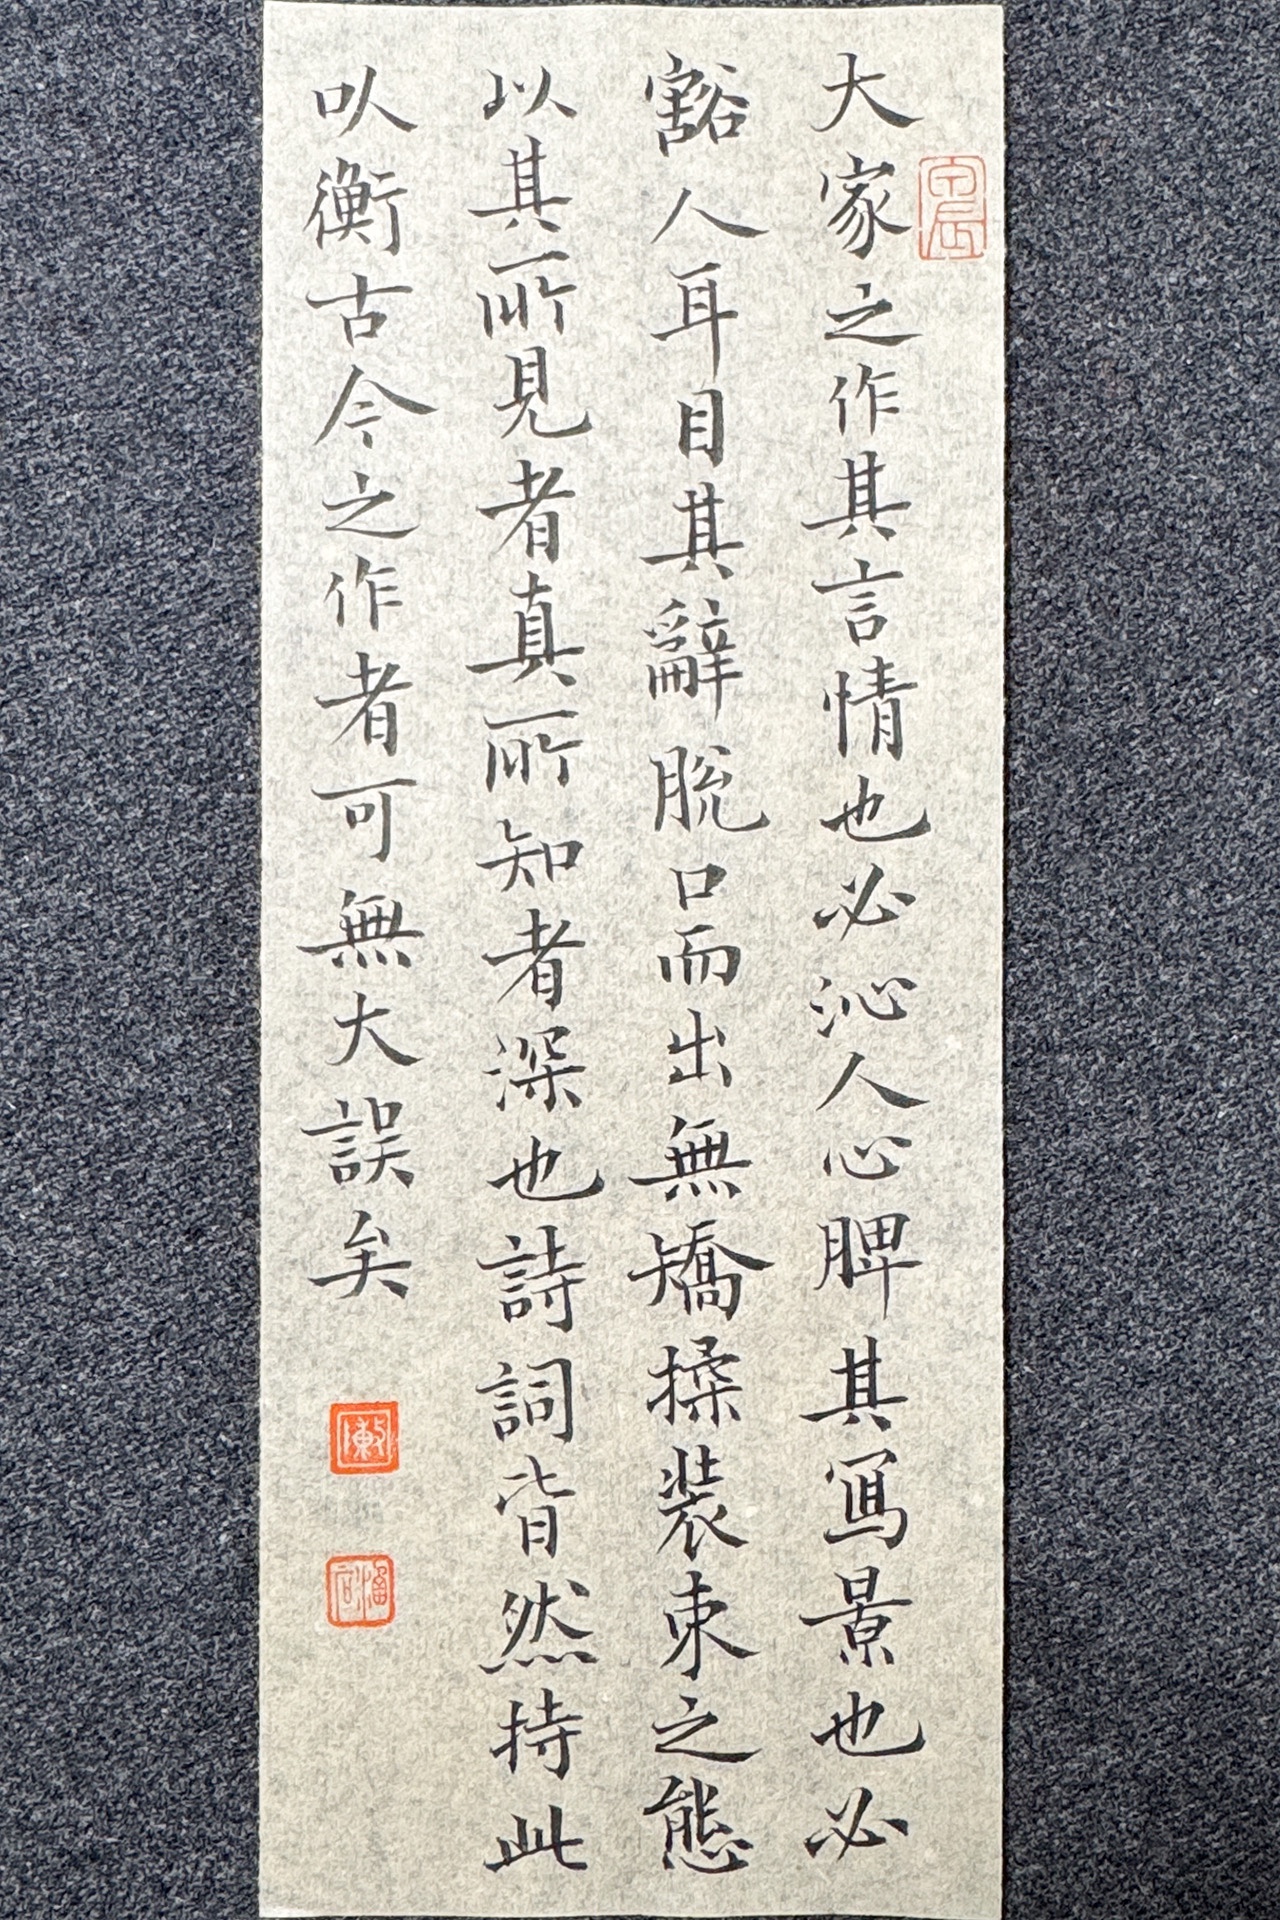 大家之作其言情也必沁人心脾其寫景也必
豁人耳目其辭脫口而出無矯揉裝束之態
以其所見者真所知者深也詩詞皆然持此
以衡古今之作者可無大誤矣